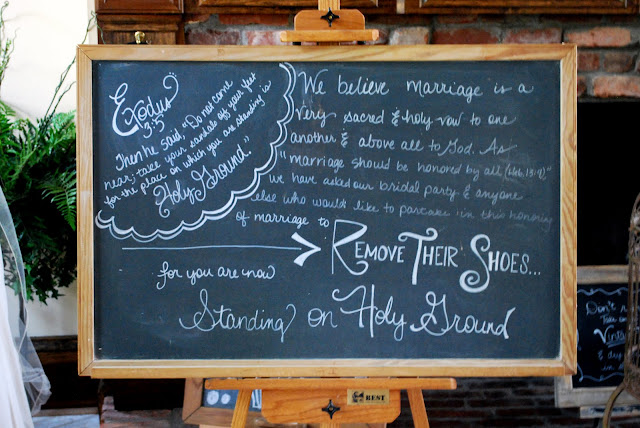 Exodus
3:5
Then he said, "Do not come
near; take your sandals off your feet
for the place on which you are standing is
Holy Ground"
We believe marriage is a
very sacred & holy vow to one
another & above all to God. As
"marriage should be honored by all (Heb. 13:4)"
we have asked our bridal party & anyone
else who would like to partake in this honoring
of marriage to
Remove Their Shoes...
for you are now
Standing on Holy Ground
BEST
Don't
Take
Vint
&
in